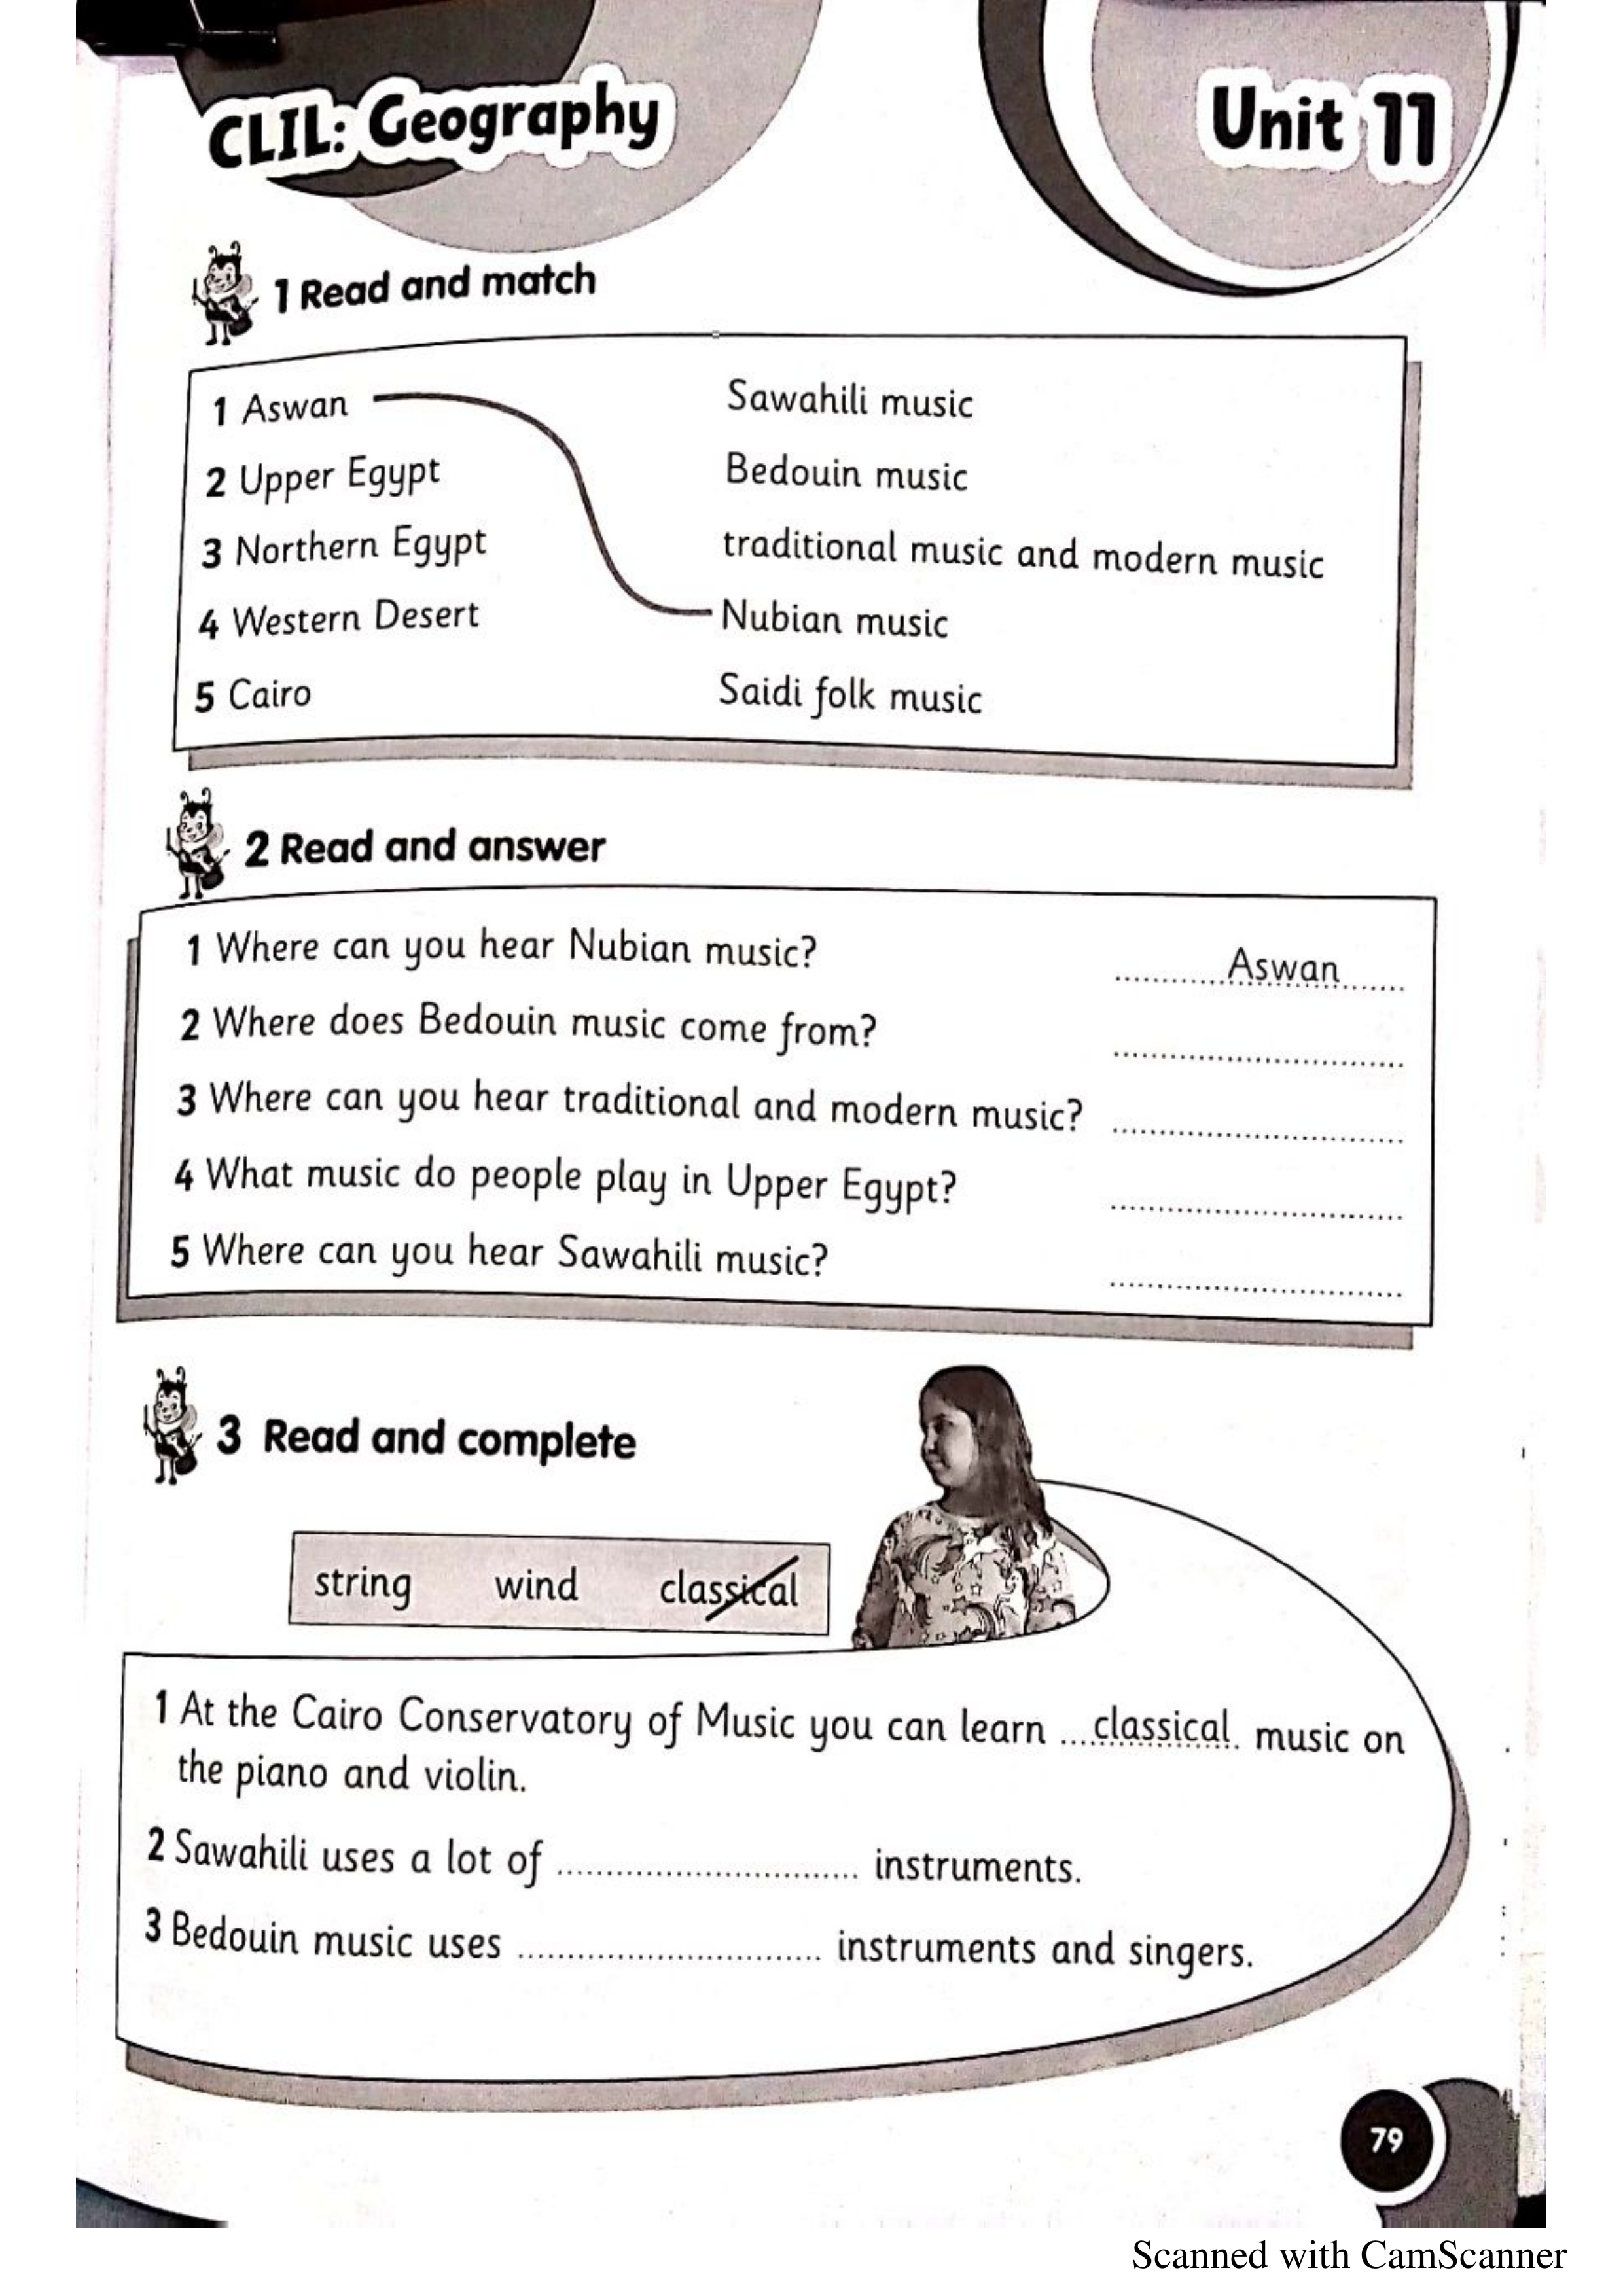 CLIL: Geography
Unit 11
1 Read and match
1 Aswan
2 Upper Egypt
3 Northern Egypt
4 Western Desert
5 Cairo
Sawahili music
Bedouin music
traditional music and modern music
Nubian music
Saidi folk music
2 Read and answer
1 Where can you hear Nubian music? ............Aswan.......
2 Where does Bedouin music come from? ..............................
3 Where can you hear traditional and modern music? ..............................
4 What music do people play in Upper Egypt? ..............................
5 Where can you hear Sawahili music? ..............................
3 Read and complete
string wind classical
1 At the Cairo Conservatory of Music you can learn ....classical. music on
the piano and violin.
2 Sawahili uses a lot of .............................. instruments.
3 Bedouin music uses .............................. instruments and singers.
79
Scanned with CamScanner